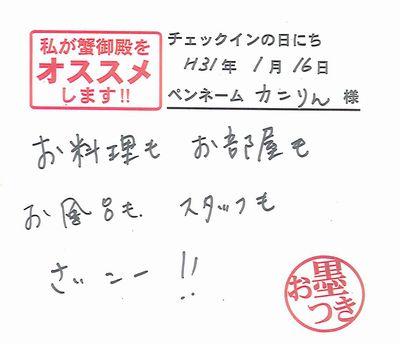 私が蟹御殿を
オススメ
します!!
チェックインの日にち
H31年 1月 16日
ペンネーム カニりん 様
お料理も お部屋も
お風呂も. スタッフも
さいこー!!
お墨つき